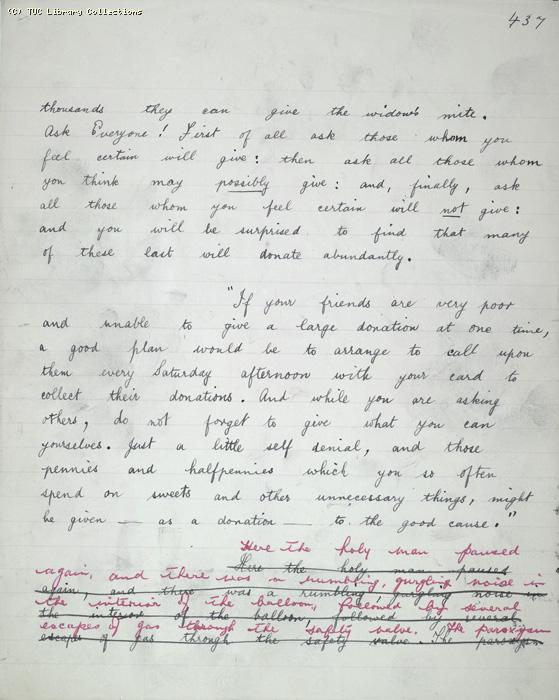 (C) TUC Library Collections
437
thousands they can give the widow's mite.
Ask Everyone! First of all ask those whom you
feel certain will give: then ask all those whom
you think may possibly give: and, finally, ask
all those whom you feel certain will not give:
and you will be surprised to find that many
of these last will donate abundantly.
"If your friends are very poor
and unable to give a large donation at one time,
a good plan would be to arrange to call upon
them every Saturday afternoon with your card to
collect their donations. And while you are asking
others, do not forget to give what you can
yourselves. Just a little self denial, and those
pennies and halfpennies which you so often
spend on sweets and other unnecessary things, might
be given — as a donation — to the good cause."
Here the holy man paused
Here the holy man pauses
again, and there was a rumbling, gurgling noise in
again, and there was a rumbling, gurgling noise in
the interior of the balloon, followed by several
the interior of the balloon, followed by several
escapes of gas through the safety valve. The paroxysm
escapes of gas through the safety valve. The paroxysm